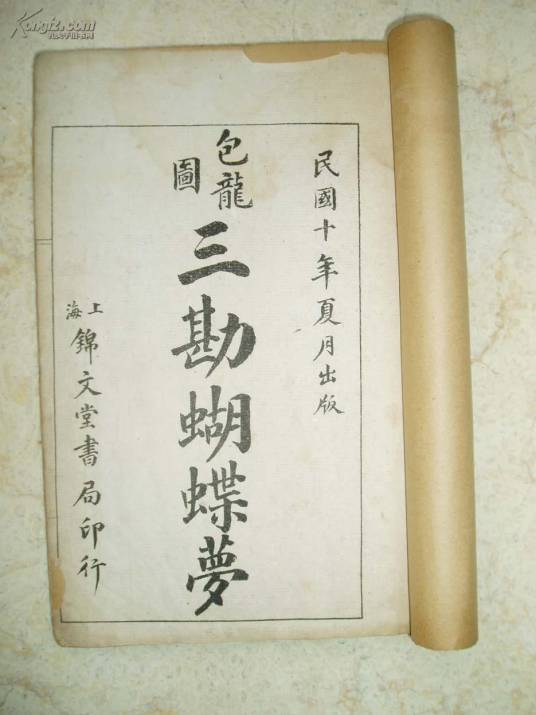 民國十年夏月出版
包龍圖
三勘蝴蝶夢
上海
錦文堂書局印行
Kongfz.com